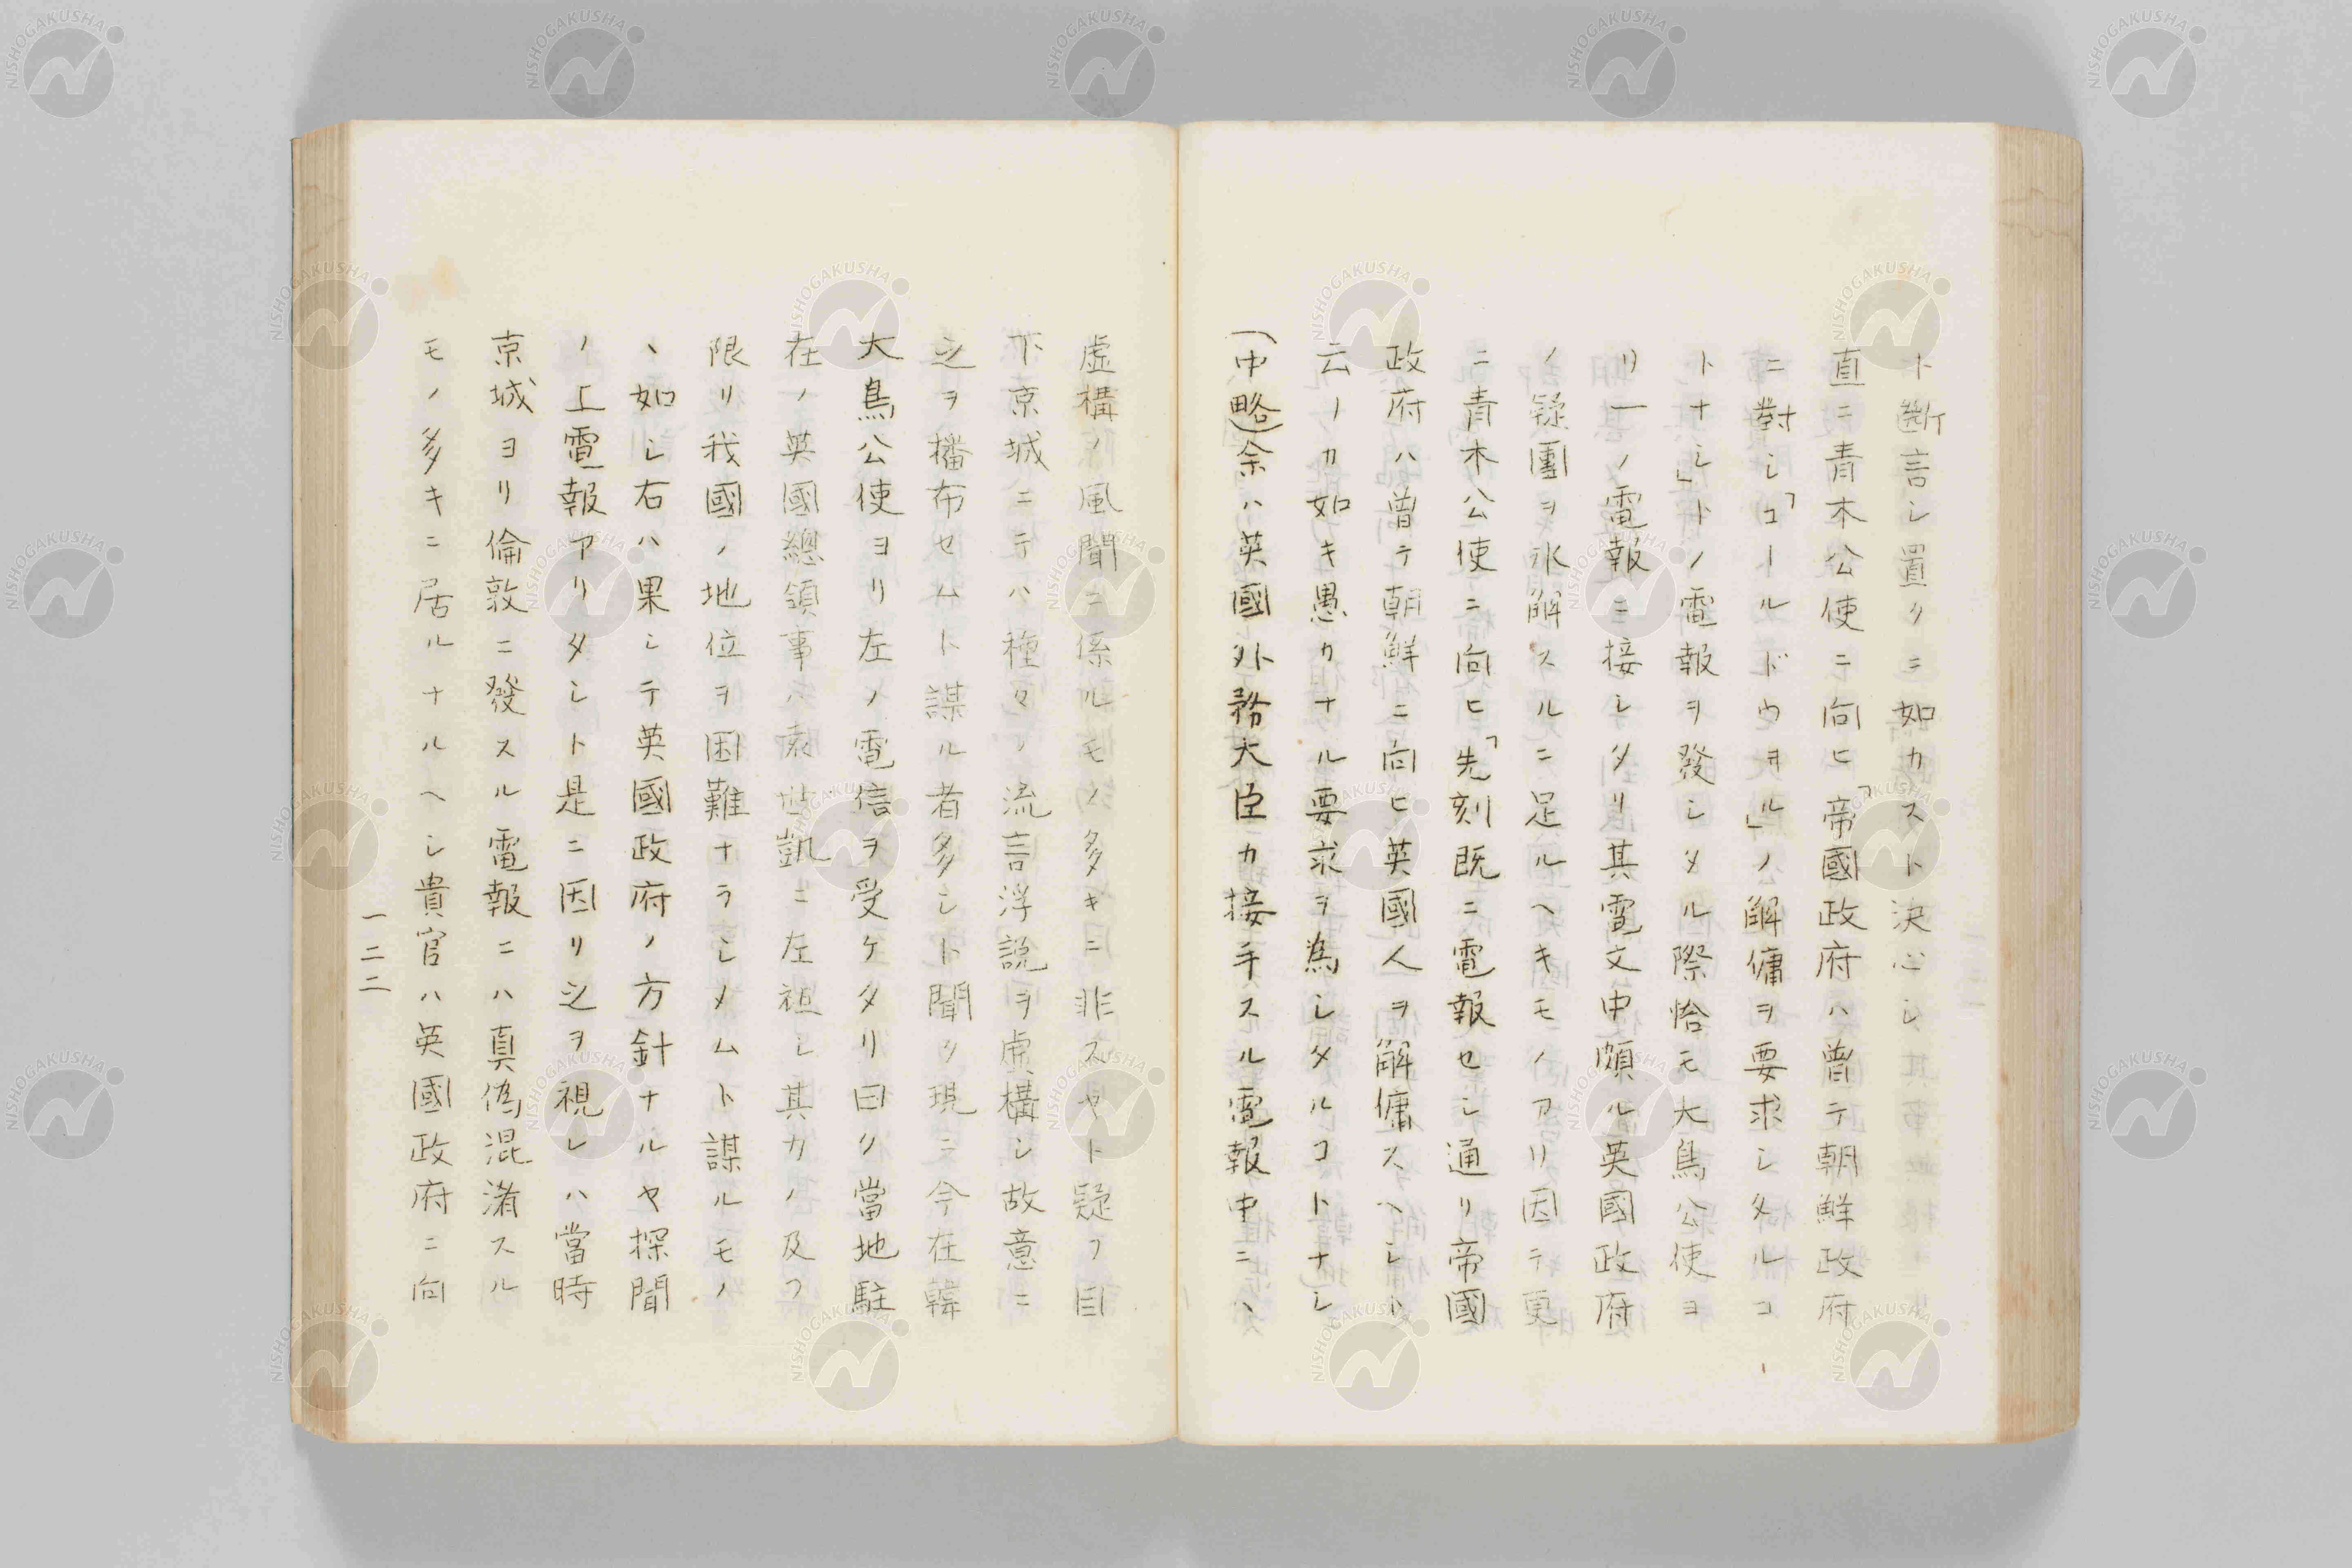 ト斷言シ置クニ如カスト決心シ
直ニ青木公使ニ向ヒ「帝國政府ハ曾テ朝鮮政府
ニ對シ「コールドウヲル」ノ解傭ヲ要求シタルコ
トナシ」トノ電報ヲ發シタル際恰モ大鳥公使ヨ
リ一ノ電報ニ接シタリ其電文中頗ル英國政府
ノ疑團ヲ氷解スルニ足ルヘキモノアリ因テ更
ニ青木公使ニ向ヒ「先刻既ニ電報セシ通リ帝國
政府ハ曾テ朝鮮ニ向ヒ英國人ヲ解傭スヘシト
云ノカ如キ愚カナル要求ヲ為シタルコトナシ
(中略)余ハ英國外務大臣カ接手スル電報中ニハ
虚構ノ風聞ニ係ルモノ多キニ非スヤト疑フ目
下京城ニテハ種々ノ流言浮説ヲ虚構シ故意ニ
之ヲ播布セムト謀ル者多シト聞ク現ニ今在韓
大鳥公使ヨリ左ノ電信ヲ受ケタリ曰ク當地駐
在ノ英國總領事ハ袁世凱ニ左袒シ其力ノ及フ
限リ我國ノ地位ヲ困難ナラシメムト謀ルモノ
ヽ如シ右ハ果シテ英國政府ノ方針ナルヤ探聞
ノ上電報アリタシト是ニ因リ之ヲ視レハ當時
京城ヨリ倫敦ニ發スル電報ニハ真偽混淆スル
モノ多キニ居ルナルヘシ貴官ハ英國政府ニ向
一二二
NISHOGAKUSHA